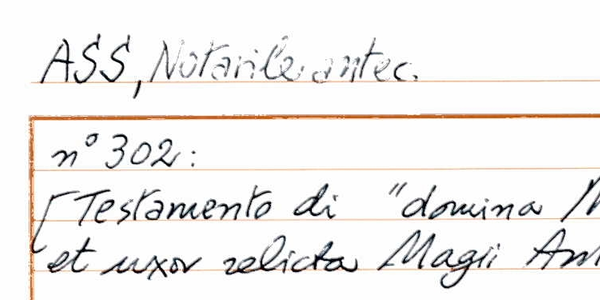 ASS, Notarile antec.
n° 302:
[Testamento di "domina
et uxor relicta Magii